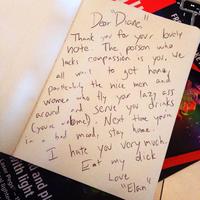 "Dear Diane,"
Thank you for your lovely
note. The person who
lacks compassion is you. We
all want to get home,
particularly the nice men and
women who fly your lazy ass
around and serve you drinks
(you're welcome!) Next time you're
in a bad mood, stay home.
I hate you very much.
Eat my dick
Love
"Elan"
with light